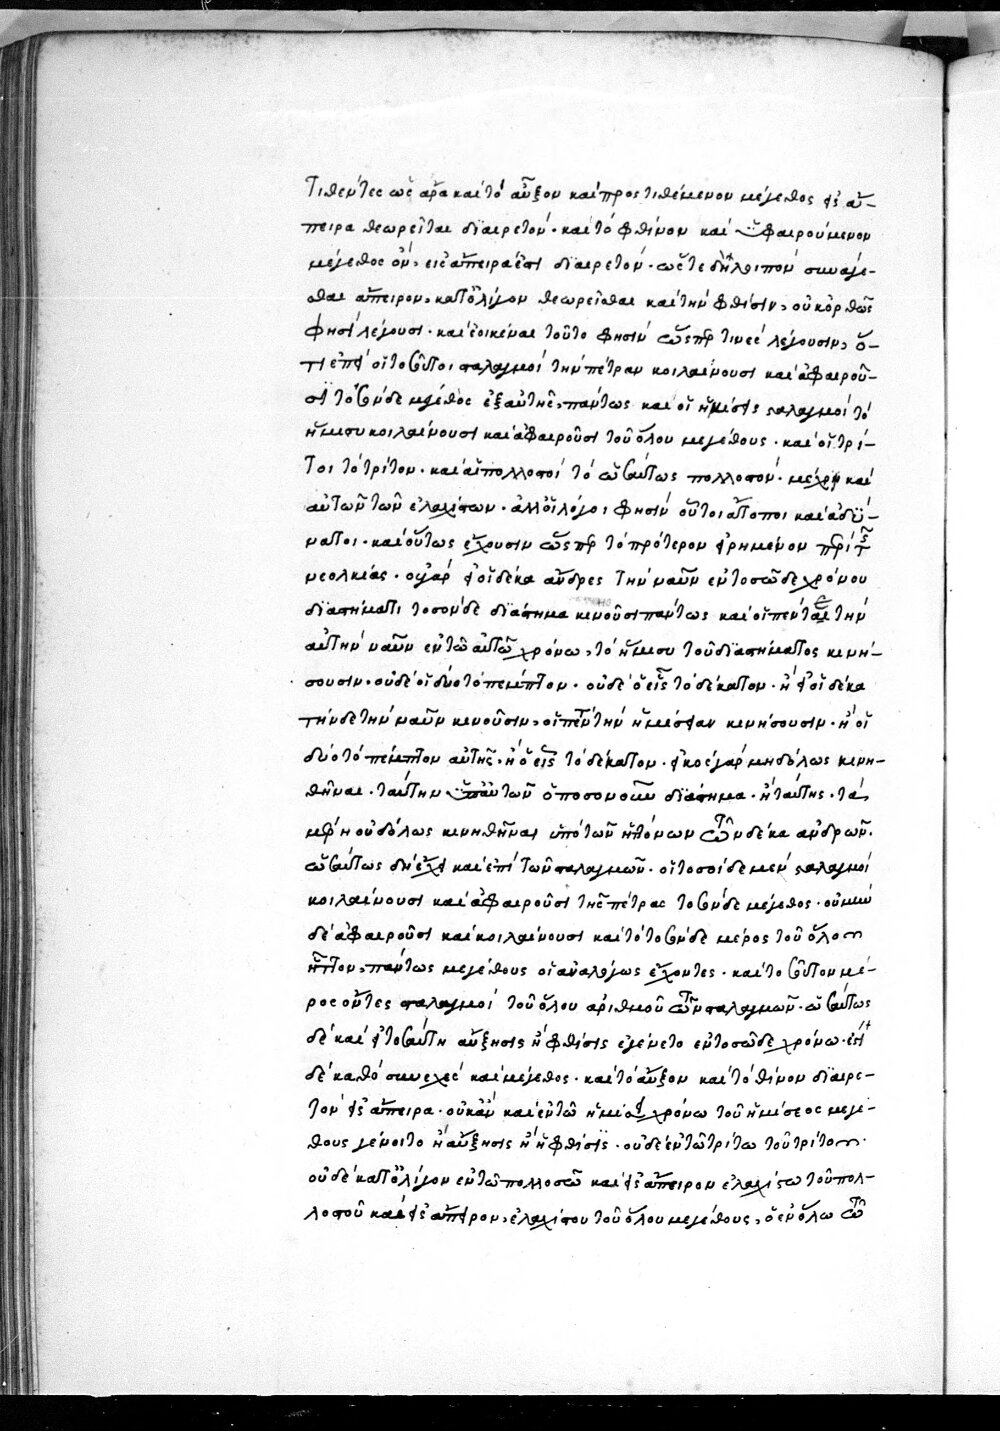 Τιθέντες ὡς ἄρα καὶ τὸ αὖξον καὶ προστιθέμενον μέγεθος εἰς ἄ-
πειρα θεωρεῖται διαιρετόν· καὶ τὸ φθίνον καὶ ὑφαιρούμενον
μέγεθος ὂν, εἰς ἄπειρα ἐστὶ διαιρετόν· ὥστε δὴ λοιπὸν συνάγε-
σθαι ἄπειρον, κατ' ὀλίγον θεωρεῖσθαι καὶ τὴν φθίσιν, οὐκ ὀρθῶς
φησὶ λέγουσι· καὶ ἐοικέναι τοῦτο φησὶν ὥσπερ τινὲς λέγουσιν, ὅ-
τι ἐπεὶ οἱ τοσοῦτοι σταλαγμοὶ τὴν πέτραν κοιλαίνουσι καὶ ἀφαιροῦ-
σι τοσόνδε μέγεθος ἐξ αὐτῆς, πάντως καὶ οἱ ἡμίσεις σταλαγμοὶ τὸ
ἥμισυ κοιλαίνουσι καὶ ἀφαιροῦσι τοῦ ὅλου μεγέθους· καὶ οἱ τρί-
τοι τὸ τρίτον· καὶ αἱ πολλοστοὶ τὸ ὡσαύτως πολλοστόν· μέχρι καὶ
αὐτῶν τῶν ἐλαχίστων· ἀλλ' οἱ λόγοι φησὶν οὗτοι ἄτοποι καὶ ἀδύ-
νατοι· καὶ οὕτως ἔχουσιν ὥσπερ τὸ πρότερον εἰρημένον περὶ τῆς
νεολκίας· οὐ γὰρ εἰ οἱ δέκα ἄνδρες τὴν ναῦν ἐν τοσῷδε χρόνου
διαστήματι τοσόνδε διάστημα κινοῦσι πάντως καὶ οἱ πέντε τὴν
αὐτὴν ναῦν ἐν τῷ αὐτῷ χρόνω, τὸ ἥμισυ τοῦ διαστήματος κινή-
σουσιν· οὐδὲ οἱ δύο τὸ πέμπτον· οὐδὲ ὁ εἷς τὸ δέκατον· ἢ εἰ οἱ δέκα
τήνδε τὴν ναῦν κινοῦσιν, οἱ πέντε τὴν ἡμίσειαν κινήσουσιν· ἢ οἱ
δύο τὸ πέμπτον αὐτῆς· ἢ ὁ εἷς τὸ δέκατον· εἰκὸς γὰρ μηδόλως κινη-
θῆναι· ταύτην ὑπ' αὐτῶν ὁποσονοῦν διάστημα· ἢ ταύτης· τὰ
μέρη οὐδόλως κινηθῆναι ὑπὸ τῶν ἡττόνων τῶν δέκα ἀνδρῶν·
ὡσαύτως δὴ ἔχει καὶ ἐπὶ τῶν σταλαγμῶν· οἱ τοσοίδε μὲν σταλαγμοὶ
κοιλαίνουσι καὶ ἀφαιροῦσι τῆς πέτρας τοσόνδε μέγεθος· οὐ μὴν
δὲ ἀφαιροῦσι καὶ κοιλαίνουσι καὶ τὸ τοσόνδε μέρος τοῦ ὅλου
ἧττον, πάντως μεγέθους οἱ ἀναλόγως ἔχοντες· καὶ τοσοῦτον μέ-
ρος ὄντες σταλαγμοὶ τοῦ ὅλου ἀριθμοῦ τῶν σταλαγμῶν· ὡσαύτως
δὲ καὶ εἰ τοσαύτη αὔξησις ἢ φθίσις ἐγένετο ἐν τοσῷδε χρόνω· ἔστι
δὲ καθὸ συνεχὲς καὶ μέγεθος· καὶ τὸ αὖξον καὶ τὸ θίνον διαιρε-
τὸν εἰς ἄπειρα· οὐκ ἂν καὶ ἐν τῶ ἡμίσει χρόνω τοῦ ἡμίσεος μεγέ-
θους γένοιτο ἢ αὔξησις ἢ ἡ φθίσις· οὐδὲ ἐν τῶ τρίτω τοῦ τρίτου·
οὐδὲ κατ' ὀλίγον ἐν τῶ πολλοστῶ καὶ εἰς ἄπειρον ἐλαχίστω τοῦ πολ-
λοστοῦ καὶ εἰς ἄπειρον, ἐλαχίστου τοῦ ὅλου μεγέθους, ὃ ἐν ὅλω τῶ